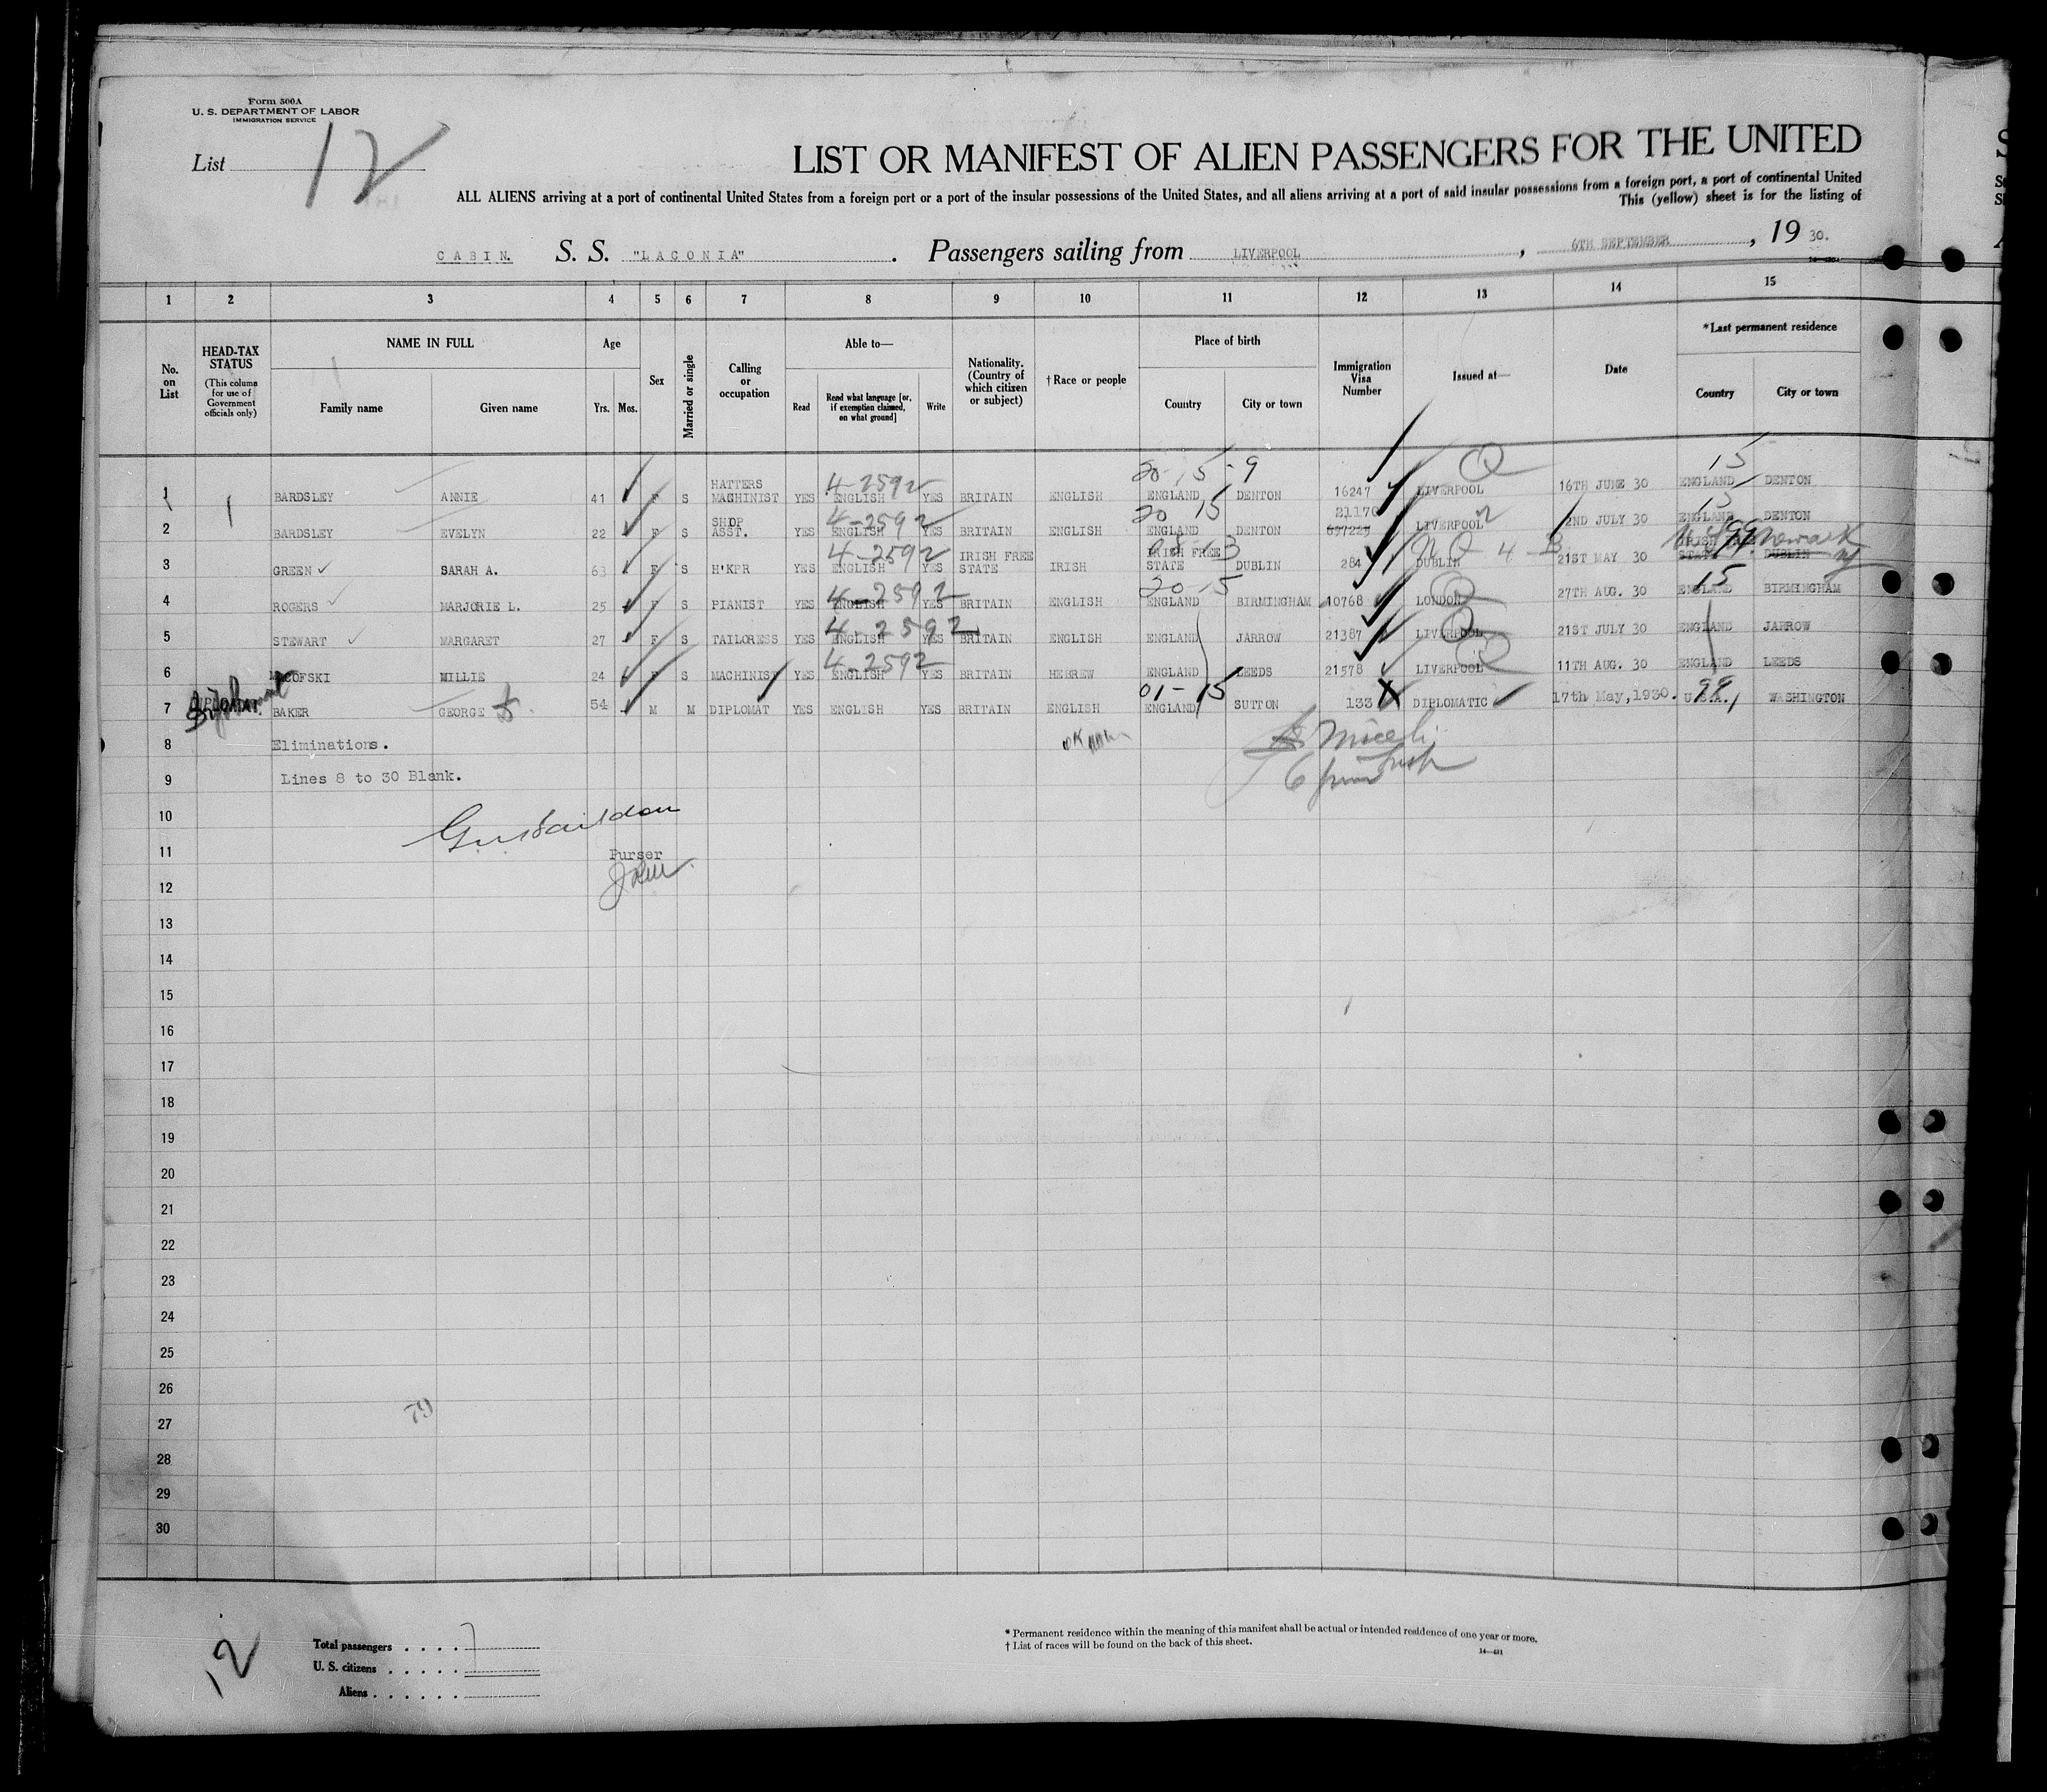 Form 500A
U. S. DEPARTMENT OF LABOR
IMMIGRATION SERVICE
List 12
LIST OR MANIFEST OF ALIEN PASSENGERS FOR THE UNITED
ALL ALIENS arriving at a port of continental United States from a foreign port or a port of the insular possessions of the United States, and all aliens arriving at a port of said insular possessions from a foreign port, a port of continental United
This (yellow) sheet is for the listing of
CABIN. S. S. "LACONIA" . Passengers sailing from LIVERPOOL , 6TH SEPTEMBER , 19 30.
1 2 3 4 5 6 7 8 9 10 11 12 13 14 15
No. on List
HEAD-TAX STATUS (This column for use of Government officials only)
NAME IN FULL
Family name Given name
Age
Yrs. Mos.
Sex
Married or single
Calling or occupation
Able to—
Read Read what language [or, if exemption claimed, on what ground] Write
Nationality. (Country of which citizen or subject)
†Race or people
Place of birth
Country City or town
Immigration Visa Number
Issued at—
Date
*Last permanent residence
Country City or town
20-15-9 15
1 BARDSLEY ANNIE 41 F S HATTERS MACHINIST YES 4-2592 ENGLISH YES BRITAIN ENGLISH ENGLAND DENTON 16247 LIVERPOOL 16TH JUNE 30 ENGLAND DENTON
20 15 21170 15
2 BARDSLEY EVELYN 22 F S SHOP ASST. YES 4-2592 ENGLISH YES BRITAIN ENGLISH ENGLAND DENTON LIVERPOOL 2ND JULY 30 ENGLAND DENTON
3 GREEN SARAH A. 63 F S H'KPR YES 4-2592 ENGLISH YES IRISH FREE STATE IRISH IRISH FREE STATE DUBLIN 284 DUBLIN NQ-4-3 21ST MAY 30 IRISH FREE STATE DUBLIN 99 Newark NJ
20-15 15
4 ROGERS MARJORIE L. 25 F S PIANIST YES 4-2592 ENGLISH YES BRITAIN ENGLISH ENGLAND BIRMINGHAM 10768 LONDON 27TH AUG. 30 ENGLAND BIRMINGHAM
5 STEWART MARGARET 27 F S TAILORESS YES 4-2592 ENGLISH YES BRITAIN ENGLISH ENGLAND JARROW 21387 LIVERPOOL 21ST JULY 30 ENGLAND JARROW
6 MACOFSKI MILLIE 24 F S MACHINIST YES 4-2592 ENGLISH YES BRITAIN HEBREW ENGLAND LEEDS 21578 LIVERPOOL 11TH AUG. 30 ENGLAND LEEDS
01-15 99
7 DIPLOMAT. BAKER GEORGE 54 M M DIPLOMAT YES ENGLISH YES BRITAIN ENGLISH ENGLAND SUTTON 133 DIPLOMATIC 17th May, 1930. U.S.A. WASHINGTON
8 Eliminations. OK
9 Lines 8 to 30 Blank.
10
11 Purser
12
13
14
15
16
17
18
19
20
21
22
23
24
25
26
27
28
29
30
79
12
Total passengers . . . . 7
U. S. citizens . . . . .
Aliens . . . . . .
* Permanent residence within the meaning of this manifest shall be actual or intended residence of one year or more.
† List of races will be found on the back of this sheet.